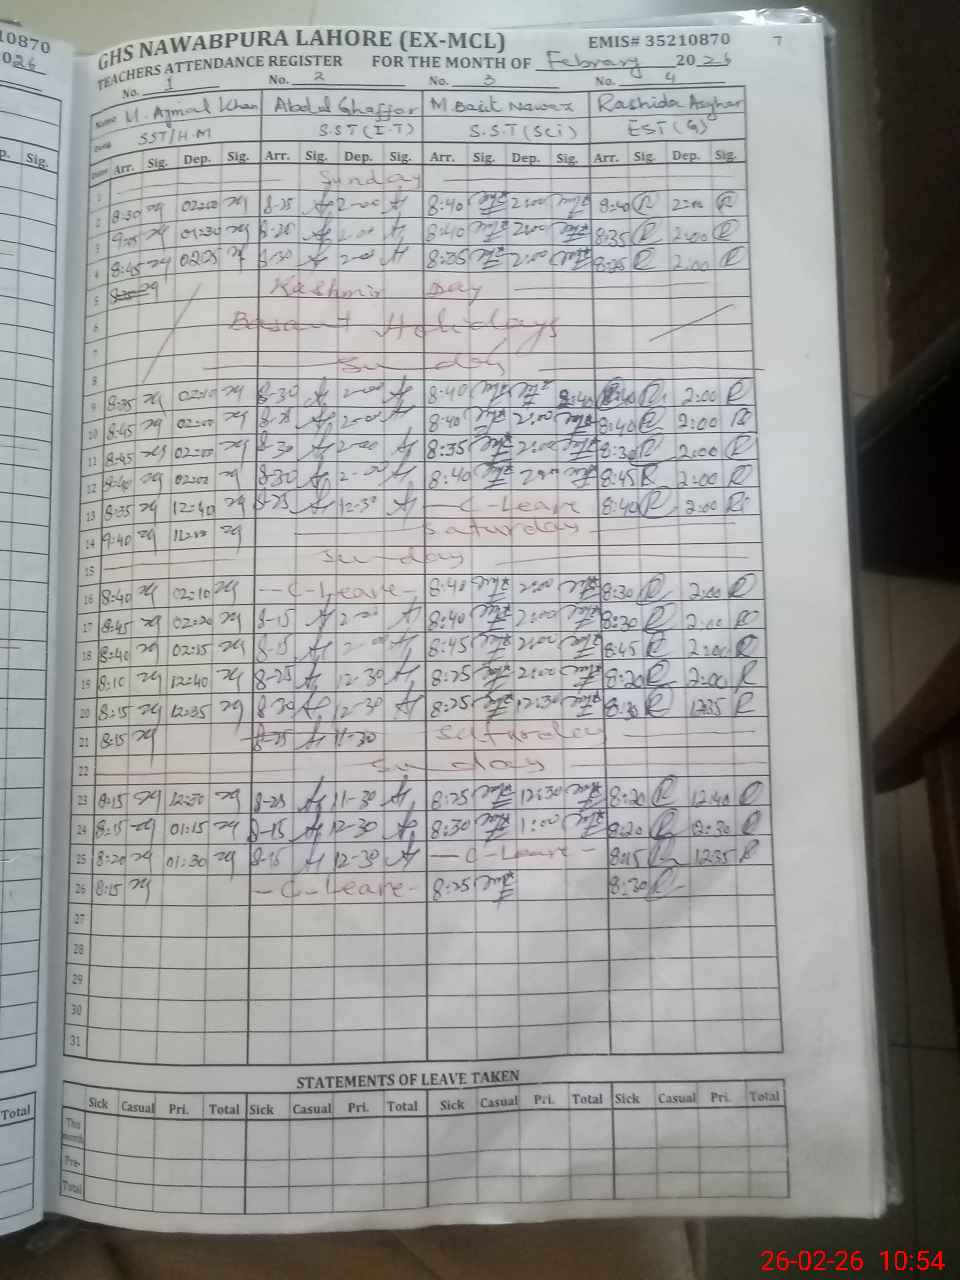 10870
2026
P.
Sig.
Total
GHS NAWABPURA LAHORE (EX-MCL) EMIS# 35210870 7
TEACHERS ATTENDANCE REGISTER FOR THE MONTH OF February 2026
No. 1 No. 2 No. 3 No. 4
Name M. Ajmal Khan Abdul Ghaffor M. Basit Nawaz Rashida Asghar
SST/H.M S.S.T (I.T) S.S.T (Sci) EST (G)
Arr. Sig. Dep. Sig. Arr. Sig. Dep. Sig. Arr. Sig. Dep. Sig. Arr. Sig. Dep. Sig.
1 Sunday
2 8:30 02:00 8-25 2-00 8:40 2:00 8:40 R 2:00 R
3 9:05 01:30 8-25 2-00 8:40 2:00 8:35 R 2:00 R
4 8:45 02:05 8-30 2-00 8:35 2:00 8:35 R 2:00 R
5 Kashmir Day
6 Basant Holidays
7
8 Sunday
9 8:35 02:10 8-30 2-00 8:40 8:40 R 2:00 R
10 8:45 02:00 2-00 8:40 2:00 8:40 R 2:00 R
11 8:45 02:00 8-30 2-00 8:35 2:00 8:30 R 2:00 R
12 8:40 02:02 8-30 2-00 8:40 8:45 R 2:00 R
13 8:35 12:40 8-25 12-30 C-Leave 8:40 R 2:00 R
14 9:40 Saturday
15 Sunday
16 8:40 02:10 C-Leave 8:40 2:00 8:30 R 2:00 R
17 8:45 02:20 8-15 2-00 8:40 2:00 8:30 R 2:00 R
18 8:40 02:15 8-15 2-00 8:45 2:00 8:45 R 2:00 R
19 8:10 12:40 8-25 12-30 8:25 2:00 8:20 R 2:00 R
20 8:15 12:35 8-30 12-30 8:25 12:30 8:30 R 12:35 R
21 8:15 8-25 11-30 Saturday
22 Sunday
23 8:15 12:30 8-25 11-30 8:25 12:30 8:20 R 12:40 R
24 8:15 01:15 8-15 12-30 8:30 1:00 8:20 R 12:30 R
25 8:20 01:30 8-15 12-30 C-Leave 8:15 R 12:35 R
26 8:15 C-Leave 8:25 8:30 R
27
28
29
30
31
STATEMENTS OF LEAVE TAKEN
Sick Casual Pri. Total Sick Casual Pri. Total Sick Casual Pri. Total Sick Casual Pri. Total
This month
Pre-
Total
26-02-26 10:54